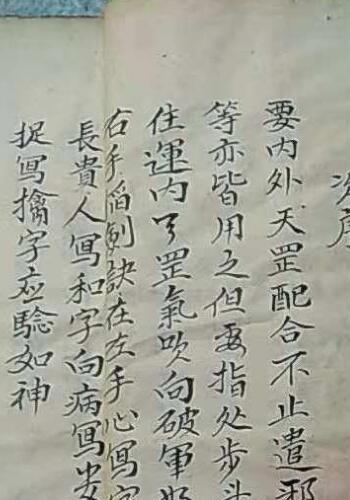 次序
要内外天罡配合不止遣邪
等亦皆用之但要指处步斗
住運内罡氣吹向破軍
右手搯剑訣在左手心寫字
長貴人寫和字向病寫安
捉寫擒字应騐如神